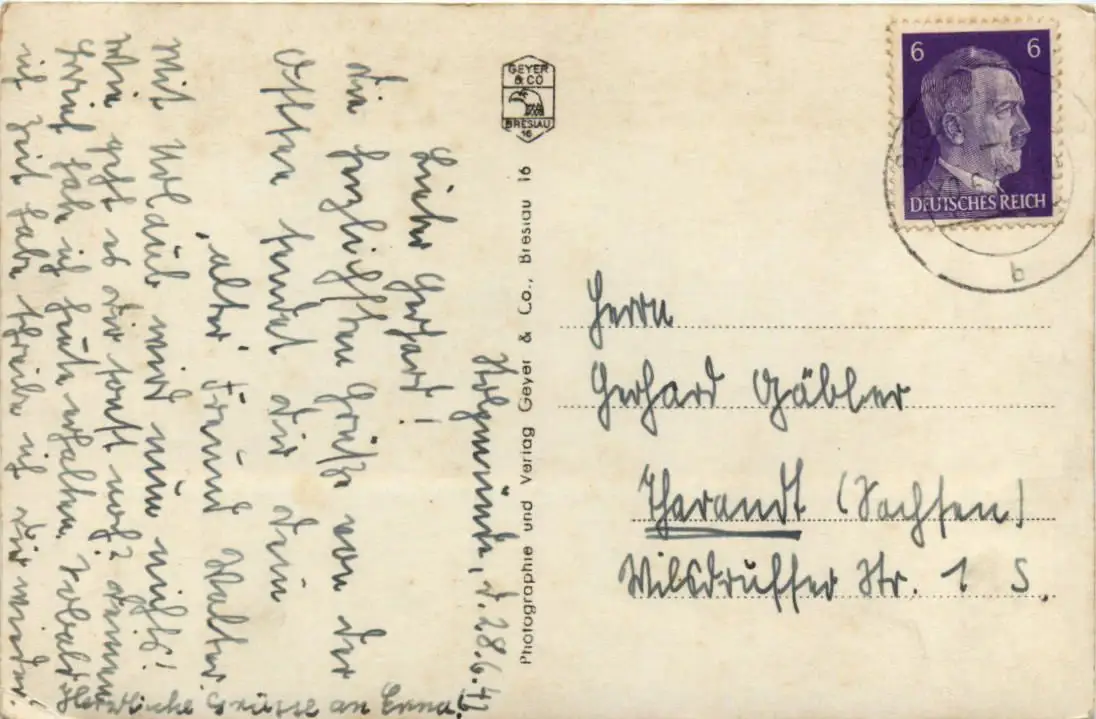 Stolpmünde, d. 28.6.42
Lieber Gerhard!
Die herzlichsten Grüße von der
Ostsee sendet dir dein
alter Freund Walter.
Mit Urlaub wird nun nichts!
Wie geht es dir sonst noch? Deinen
Brief hab ich heute erhalten, sobald
ich Zeit habe schreibe ich dir wieder.
Herzliche Grüsse an Erna!
GEYER
& CO
BRESLAU
16
Photographie und Verlag Geyer & Co., Breslau 16
6 6
DEUTSCHES REICH
b
Herrn
Gerhard Gäbler
Tharandt (Sachsen)
Wilsdruffer Str. 1 5.